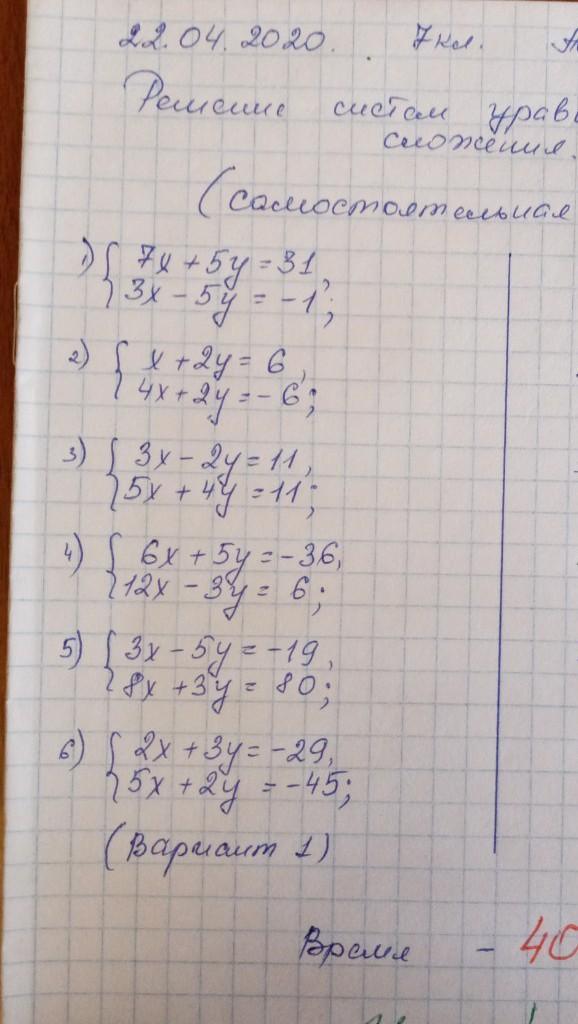 22.04.2020. 7 кл.
Решение систем
сложения.
(самостоятельная
1) { 7x + 5y = 31,
3x - 5y = -1;
2) { x + 2y = 6,
4x + 2y = -6;
3) { 3x - 2y = 11,
5x + 4y = 11;
4) { 6x + 5y = -36,
12x - 3y = 6;
5) { 3x - 5y = -19,
8x + 3y = 80;
6) { 2x + 3y = -29,
5x + 2y = -45;
(Вариант 1)
Время - 40